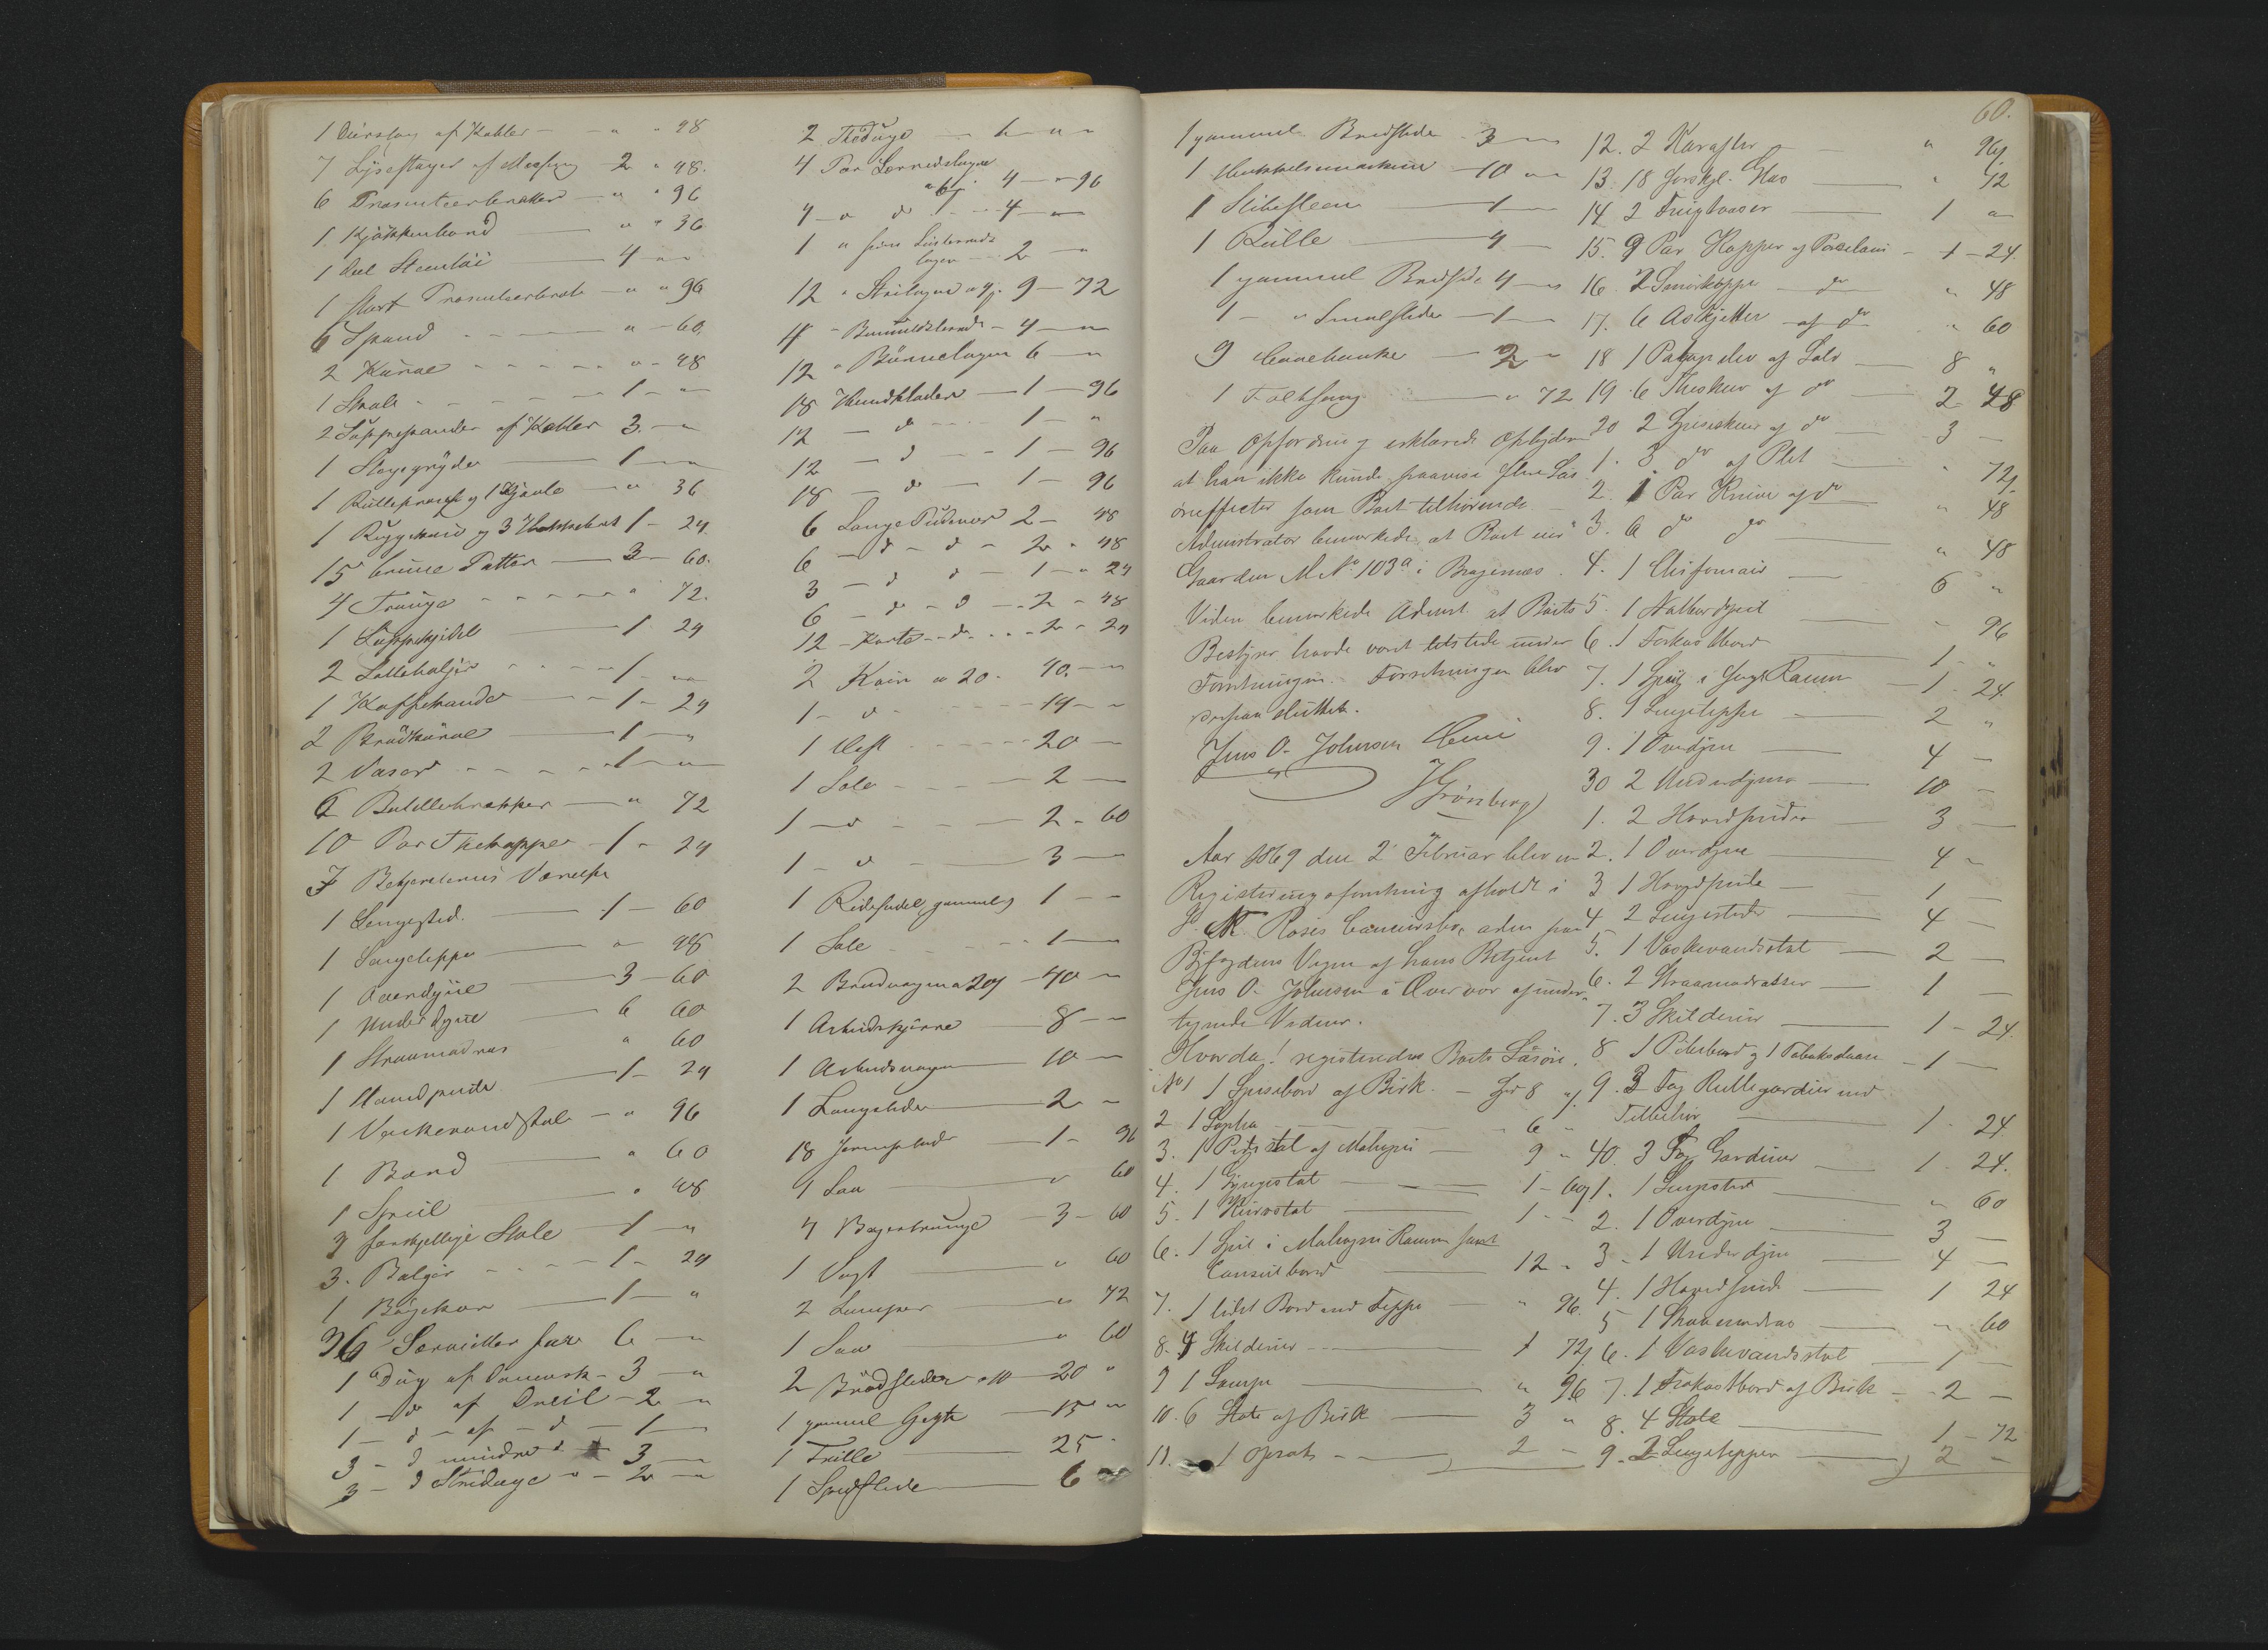 1 Dørslag af Kobber - " " 48
7 Lysestager af Messing 2 " 48.
6 Præsenteerbrakker - " " 96
1 Kjøkkenbord " " 36
1 Deel Steentøi 4 " "
1 stort Præsenteerbræt - " " 96
6 Spand " - 60.
2 Kurve " - 48
1 Skale 1 - "
2 Suppepander af Kobber 3. - "
1 Stegegryde 1 - "
1 Rullepresse og 1 Kjævle - " 36
1 og 3 1 - 24
15 brune Fatter 3 - 60.
4 Trauge " 72.
1 Suppekjedel 1 24
2 1 - "
1 Kaffekande 1 - 24
2 Brødkurve 1 - "
2 Vaser 1 - "
2 " 72
10 Par Thekopper 1 " 24
I Betjenternes Værelse
1 Sengested. 1 - 60
1 Sengeteppe " 48
1 Overdyne 3 - 60
1 Underdyne 6 60
1 Straamadras " 60
1 Hovedpude 1 - 24
1 Vaskevandstol - " 96
1 Bord " 60
1 Speil " 48
3 forskjellige Stole 1 - "
3. Baljer 1 - 24
1 Bøgekar 1 - "
36 Servietter 6 - "
1 Dug af Damask - 3 - "
1 - do af Dreil - 2 - "
1 - d - af - d - 1 -
3 - d mindre d 3 -
3 - d Striduge " - 2 - "
2 Theduge 1 - " "
4 Par Lærredslagen
4 - " 96
4 - " d - 4 -
1 " fine Lærreds
lagen 2 -
12 " Strilagen 9 - 72
4 - Bomuldslærreds - 4 -
12 " Børnelagen 6 - "
18 Haandklæder 1 - 96
12 - d 1 - "
12 - d - 1 - 96
18 - d - 1 - 96
6 Lange Pudevar 2 - 48
6 - d - d - 2 " 48
3 - d d - 1 - " 24
6 - d - d - 2 - 48
12 - Korte - d - 2 - 24
2 Køer a 20 - 40. - "
1 - d 14 - "
1 Hest 20 -
1 Sele 2 -
1 - d 2 - 60
1 - d - 3 -
1 Ridesadel, gammel 1 -
1 Sele 1 -
2 40 -
1 Arbeidskjærre 8 -
1 Arbeidsvogn 10 -
1 Langslede 2 -
18 1 - 96
1 Sau " 60
4 Bagertrauge 3 - 60
1 Vægt " 60
2 Lamper " 72
1 Sau " 60
2 Brødsleder a 10 20 "
1 gammel Gigte 15 "
1 Trille 25 -
1 Spidsslæde 6 "
60.
1 gammel Bredslede 3 -
1 Hakkelsemaskine - 10 " "
1 Slibesteen 1 -
1 Rulle 4 -
1 gammel Bredslede 4 -
1 - " Smalslede - 1 -
9 2 "
1 " 72
Paa Opfordring erklærede Opbyderen
at han ikke kunde paavise flere Løs
øreffecter som Boet tilhørende
Administrator bemærkede at Boet eier
Gaarden M.No. 103a i Bragernæs.
Videre bemærkede Admst. at Boets
Bestyrer havde været tilstede under
Forretningen. Forretningen blev
derpaa sluttet.
Jens O. Johnsen
H Grønberg
Aar 1869 den 2 Februar blev en
Registreringsforretning afholdt i
Roses Concursbo, aden paa
Byfogdens Vegne af hans Betjent
Jens O. Johnsen i Overvær af under
tegnede Vidner.
Hvorda! registreredes Boets Løsøre.
No 1 1 Spisebord af Birk. - Spd 8 "
2 1 Sopha 6 "
3. 1 Pidestal af Mahogni - 9 "
4. 1 Gyngestol 1 - 60
5. 1 Kurvstol 1 -
6. 1 Speil i Mahogni Ramme samt
Consolbord 12 "
7. 1 lidet Bord med Teppe " 96.
8. 4 Skilderier 1 72
9 1 Lampe " 96
10. 6 Stole af Birk 3 "
11. 1 2 -
12. 2 Karafler " 96
13. 18 forskjl. Glas " 42
14 2 Frugtvaser 1 "
15. 9 Par Kopper af Porcelain - 1 - 24.
16. 2 Smørkopper do " 48
17. 6 Askjetter af do " 60
18 1 Potageslev af Sølv 8 "
19. 6 Theskeer af do 2 - 48
20 2 Spiseskeer af do 3 -
1. 3 do af Plet " 72
2. 1 Par Knive af do " 48
3. 6 do do " 48
4. 1 Chifonnier 6 "
5. 1 Natbordspeil " 96
6. 1 Frokostbord 1 - "
7. 1 Speil i Ramme 1 - 24
8. 1 Sengeteppe 2 "
9. 1 Overdyne 4 -
30 2 Underdyner 10 -
1. 2 Hovedpuder 3 -
2. 1 Overdyne 4 -
3 1 Hovedpude 1 -
4 2 Sengesteder 4 -
5. 1 Vaskevandsstol 2 -
6. 2 Straamadratser 1 -
7. 3 Skilderier 1 - 24.
8 1 Pidebord og 1 Tobaksdaase - 1 -
9. 3 Fag Rullegardiner med
Tilbehør 1 - 24
40. 3 Fag Gardiner 1 - 24.
1. 1 Sengested " 60
2. 1 Overdyne 3 -
3 - 1 Underdyne 4 -
4. 1 Hovedpude 1 24
5 1 Straamadras " 60
6. 1 Vaskevandsstol 1 -
7. 1 Frokostbord af Birk - 2 -
8. 4 Stole 1 - 72
9. 2 Sengetepper 2 -